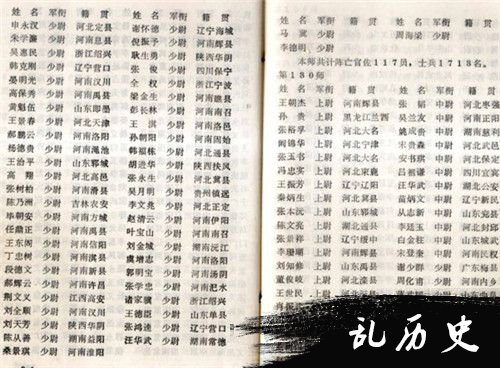 姓名 军衔 籍贯 姓名 军衔 籍贯
申永汉 少尉 河北定县 谢怀德 少尉 辽宁海城
朱学濂 少尉 河南息县 倪振子 少尉 河南辉县
吴惠民 少尉 浙江绍兴 耿生勇 少尉 陕西华阴
韩克刚 少尉 辽宁营口 张俊 少尉 四川保宁
晏明光 少尉 河南汉川 全权 少尉 浙江
高保秀 少尉 河南禹县 梁金生 少尉 河南嵩县
黄魁伍 少尉 山东即墨 彭长林 少尉 河南南召
王景春 少尉 河北天津 王淇 少尉 河南洛邑
郝鹏云 少尉 河南洛阳 孙朝阳 少尉 河南固始
杨德贵 少尉 河南渑池 韩福栋 少尉 河北通县
王治平 少尉 山东郓城 胡进华 少尉 陕西扶风
高翔 少尉 河北高邑 张永生 少尉 河北冀县
张树柏 少尉 河南滑县 吴月明 少尉 贵州镇远
陈乃洲 少尉 吉林农安 李文兆 少尉 河南正定
毕朝安 少尉 河南方城 赵清云 少尉 河南伊阳
任鼎正 少尉 河南禹县 叶宝山 少尉 河南南召
王东阁 少尉 河南信阳 刘金城 少尉 湖南沅江
丁忠树 少尉 河南项县 虞增志 少尉 河南洛阳
段德文 少尉 河南新县 郭明宝 少尉 河南汤阴
郝辉云 少尉 河南许昌 张学忠 少尉 河南汜水
荆文义 少尉 江西高安 诸家骥 少尉 浙江绍兴
刘全顺 少尉 河南汉川 王德臣 少尉 山东单县
刘天芳 少尉 陕西华阴 张鸿逵 少尉 辽宁营口
陈从善 少尉 湖南益阳 汪华武 少尉 湖南常德
桑景琪 少尉 河南淮阳
姓名 军衔 籍贯 姓名 军衔 籍贯
马冀 少尉 周海梁 少尉
李德明 少尉
本师共计阵亡官佐117员,士兵1718名。
第180师
王朝杰 上尉 河南辉县 张韬 中尉 河北枣
孙贵 上尉 黑龙江兰西 吴兰友 中尉 河南正阳
张裕孚 上尉 河北大名 姚成贵 中尉 湖南慈
阎锦华 上尉 河北宁津 宋贵森 中尉 河北武
张玉书 上尉 河北大名 安书琪 中尉 河北保
冯忠实 上尉 河北束鹿 吕祖谦 中尉 四川宜宾
王振芳 上尉 辽宁辽阳 汪华武 中尉 湖北
秦炳生 上尉 河北冀县 温炳文 中尉 辽宁新民
张本沅 上尉 山东郓城 苗志新 中尉 山东
陈文亮 上尉 湖北应城 李廷玉 中尉 河北封邱
张景祥 上尉 辽宁绥中 白金柱 中尉 山东
李珊瑚 上尉 河南舞阳 宋登奎 中尉 河南
刘知修 上尉 山东禹县 谢少群 少尉 广东梅县
董俊岐 上尉 河南 周化甫 少尉 河南
王世民 上尉
乱历史